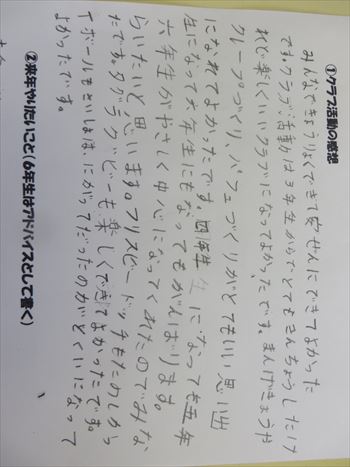 ①クラブ活動の感想
みんなできょうりょくできて安ぜんにできてよかった
です。クラブ活動は3年生からでとてもきんちょうしたけ
れど楽しくいいクラブになってよかったです。まんげきょうや
クレープづくり、パフェづくりがとてもいい思い出
になれてよかったです。四年生になっても五年
生になって六年生にもなってもがんばります。
六年生がやさしく中心になってくれたのでみな
らいたいと思います。フリスビードッチもたのしかっ
たです。タグラグビーも楽しくできてよかったです。
イボールもさいしょは、にがてだったのがとくいになって
よかったです。
②来年やりたいこと(6年生はアドバイスとして書く)